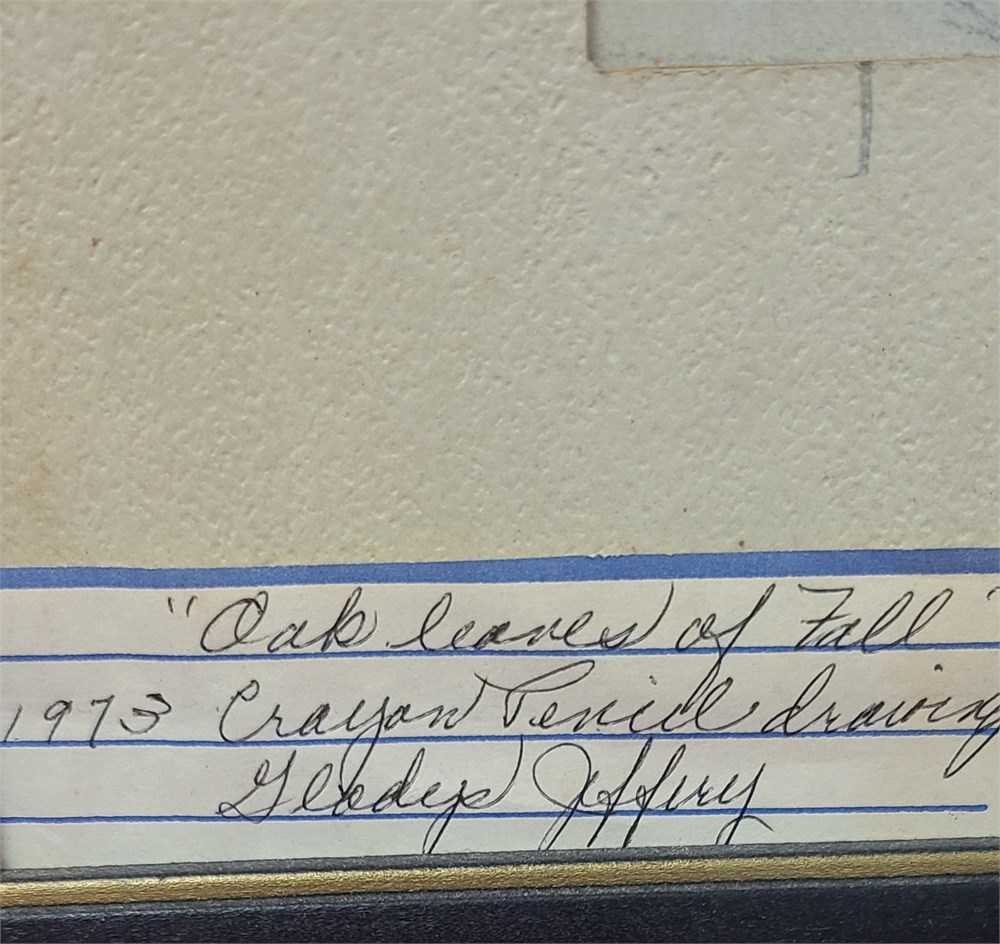 "Oak leaves of Fall"
1973 Crayon Pencil drawing
Gladys Jeffrey